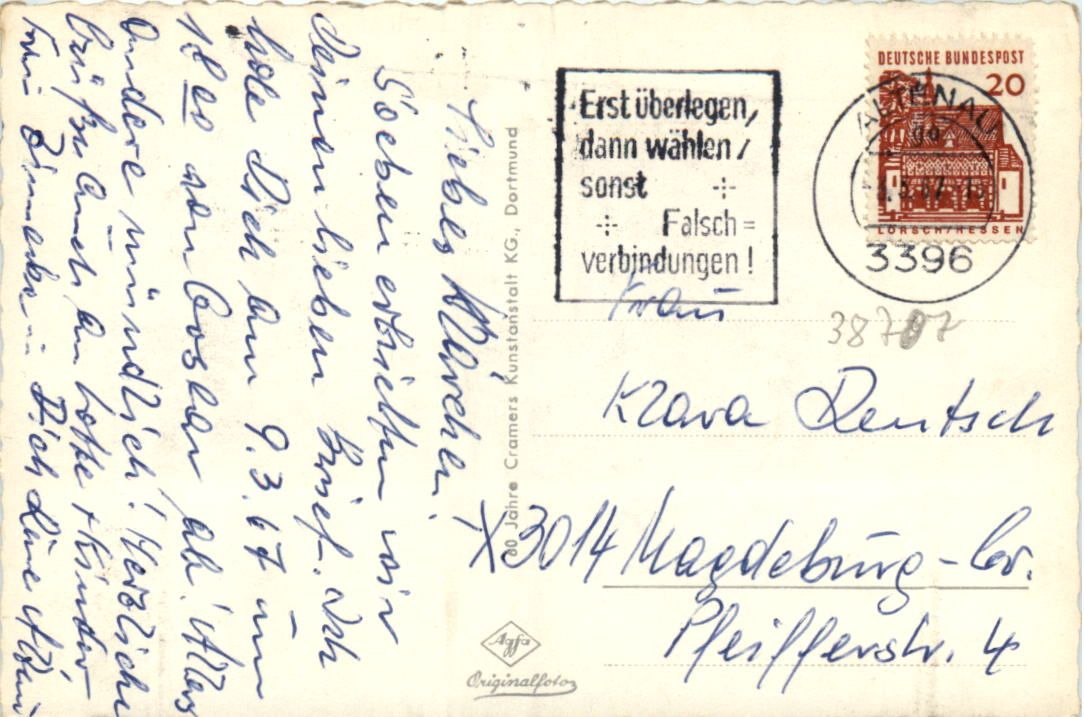 Liebes Klärchen!
Soeben erhielten wir
deinen lieben Brief. Ich
hole Dich am 9.3.67 um
18 00 von Goslar ab! Alles
andere mündlich! Herzliche
Grüße auch an Lotte + Kinder
Dich
60 Jahre Cramers Kunstanstalt KG., Dortmund
Agfa
Originalfotos
Erst überlegen,
dann wählen,
sonst
Falsch=
verbindungen!
ALTENAU
3396
DEUTSCHE BUNDESPOST
20
LORSCH/HESSEN
38707
Frau
Klara Deutsch
X3014 Magdeburg-
Pfeifferstr. 4